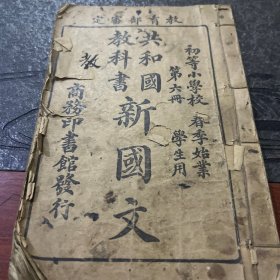 教育部審定
初等小學校 春季始業
第六冊 學生用
共和國
教科書
新國文
教
商務印書館發行